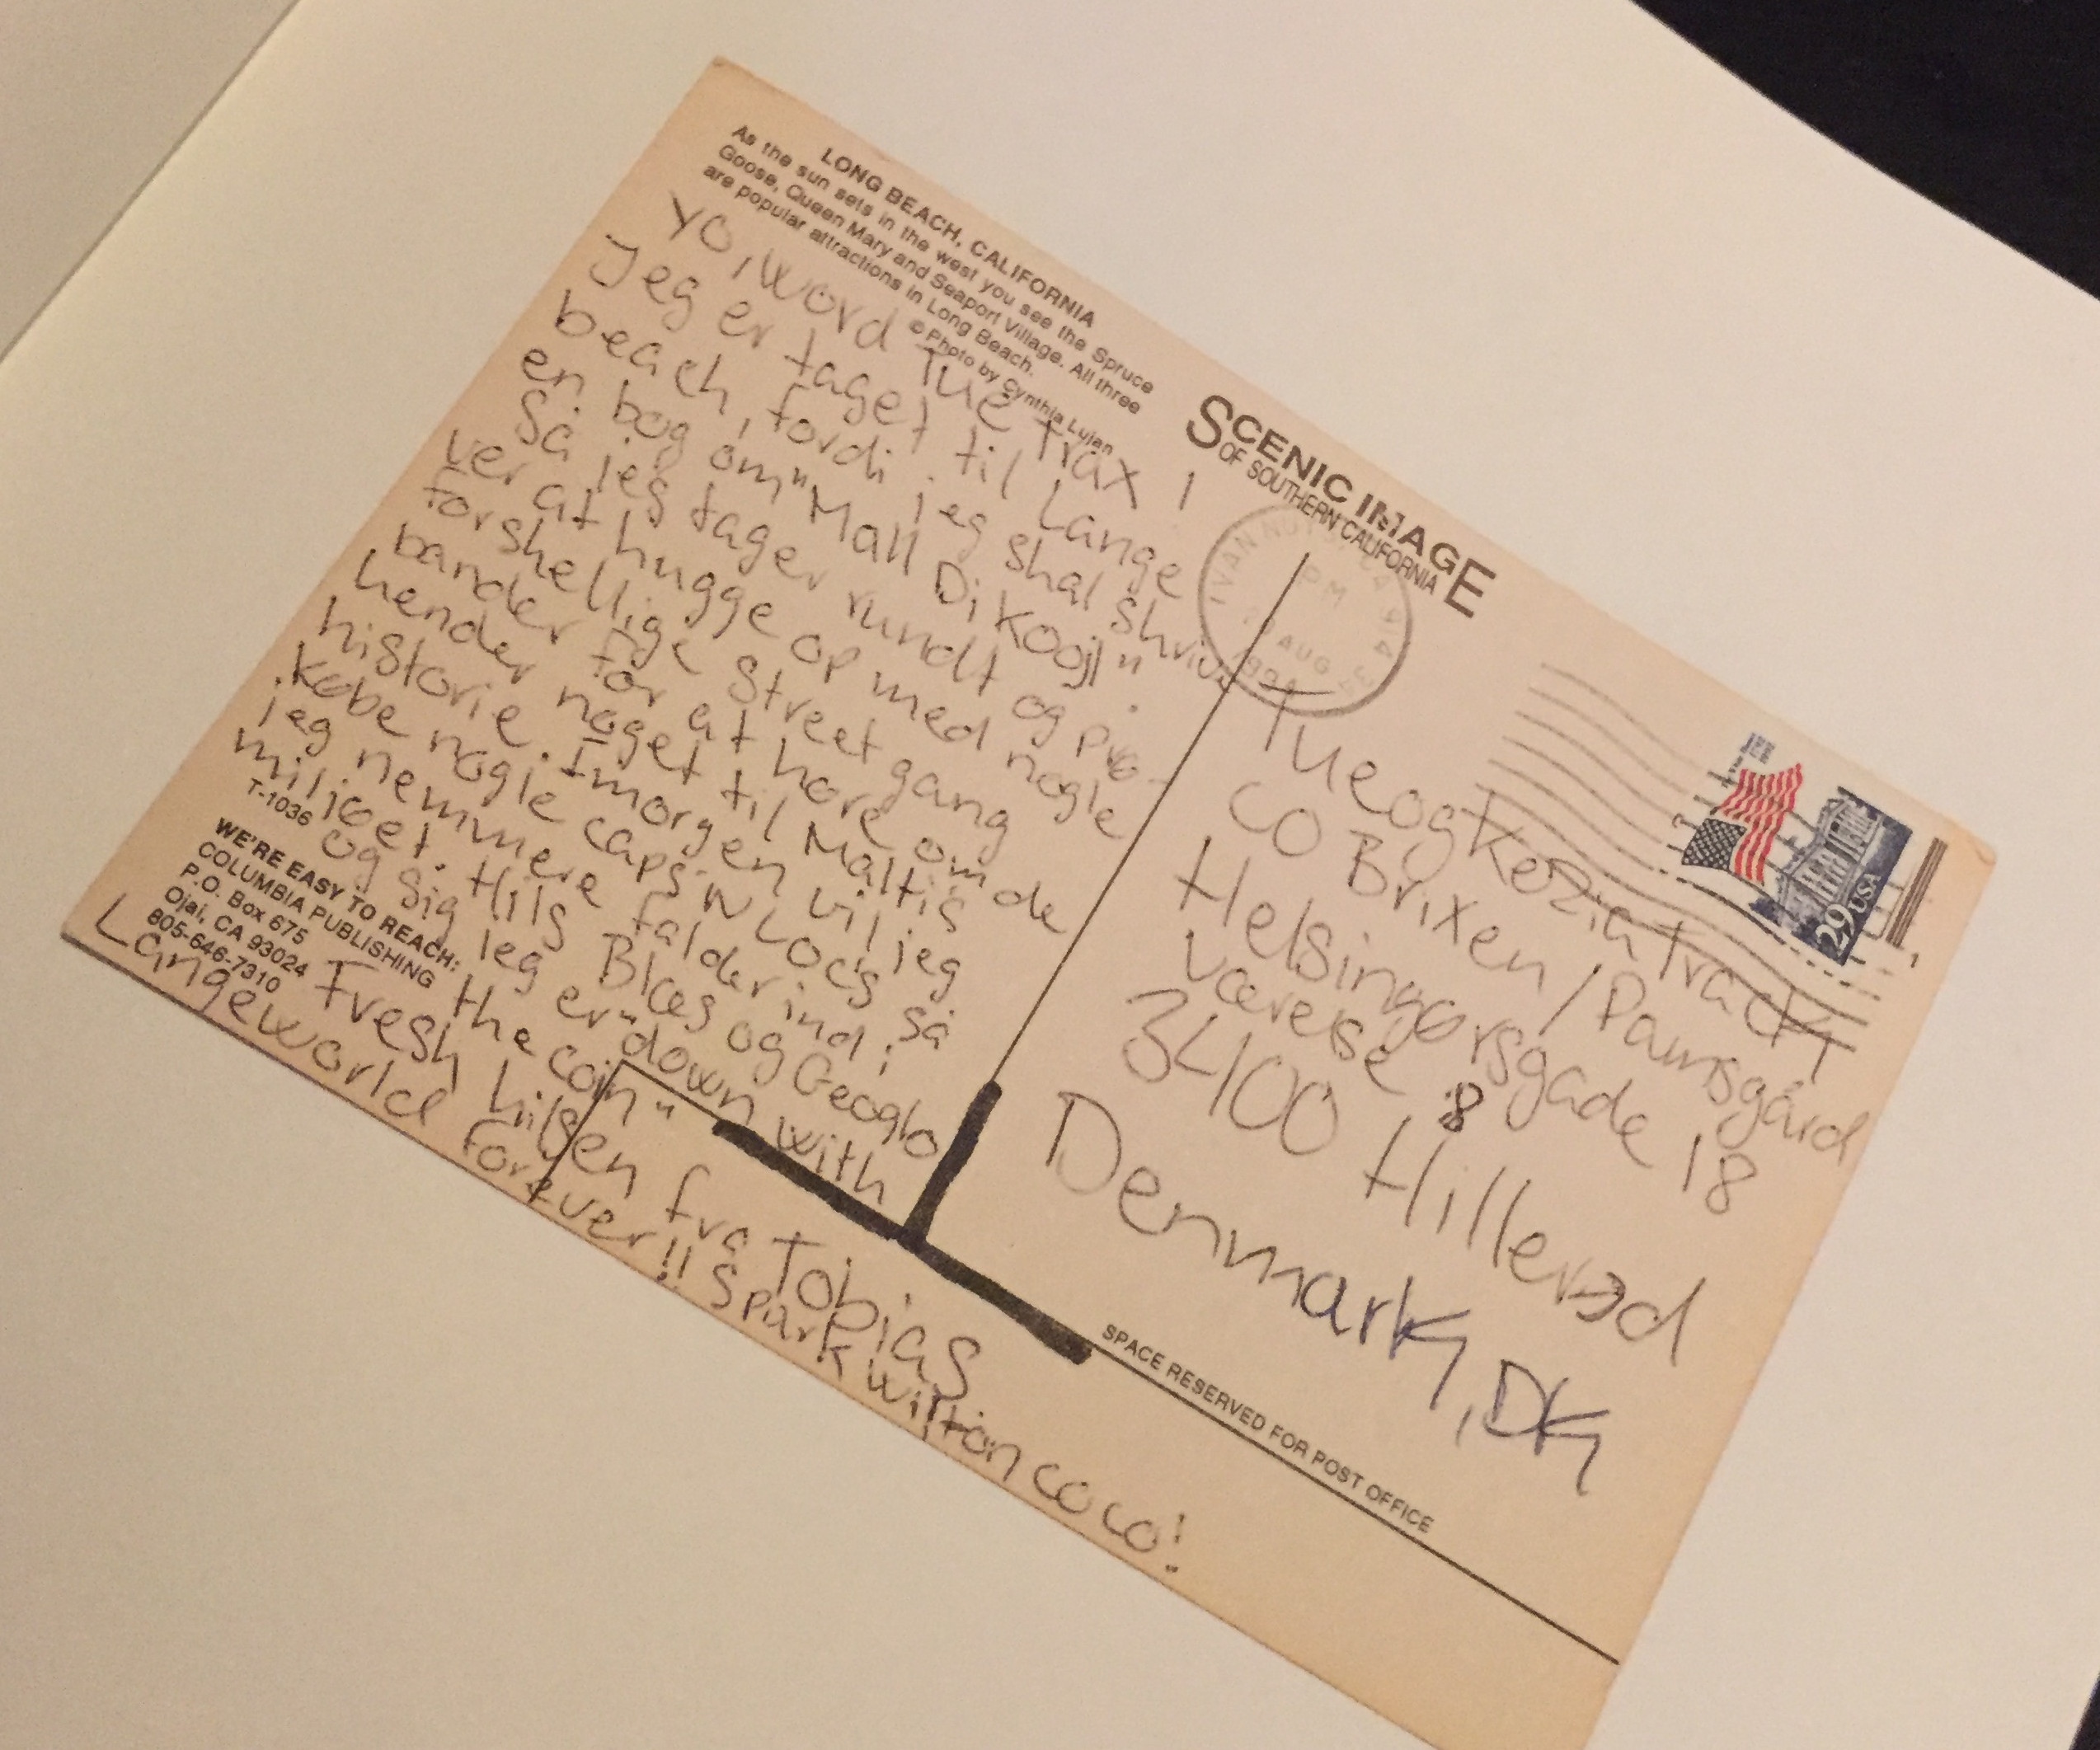 LONG BEACH, CALIFORNIA
As the sun sets in the west you see the Spruce
Goose, Queen Mary and Seaport Village. All three
are popular attractions in Long Beach.
© Photo by Cynthia Lujan
Yo, word Tue Trax!
Jeg er taget til Lange
beach, fordi jeg skal skrive
en bog om "Mall Di Kooji".
Så jeg tager rundt og prø-
ver at hugge op med nogle
forskellige street gang
bander for at høre om de
kender noget til Maltis
historie. Imorgen vil jeg
købe nogle caps 'N Locs så
jeg nemmere falder ind i
miljøet. Hils Blæs og Geoglo
og sig jeg er "down with
the coin"
Fresh hilsen fra Tobias
Langeworld forever!! Spark wilton co co!
T-1036
WE'RE EASY TO REACH:
COLUMBIA PUBLISHING
P.O. Box 675
Ojai, CA 93024
805-646-7310
SCENIC IMAGE
OF SOUTHERN CALIFORNIA
PM
AUG
1994
29 USA
Tue og Kezia Tract
CO Brixen / Pamsgård
Helsingørsgade 18
værelse 8
3400 Hillerød
Denmark, DK
SPACE RESERVED FOR POST OFFICE